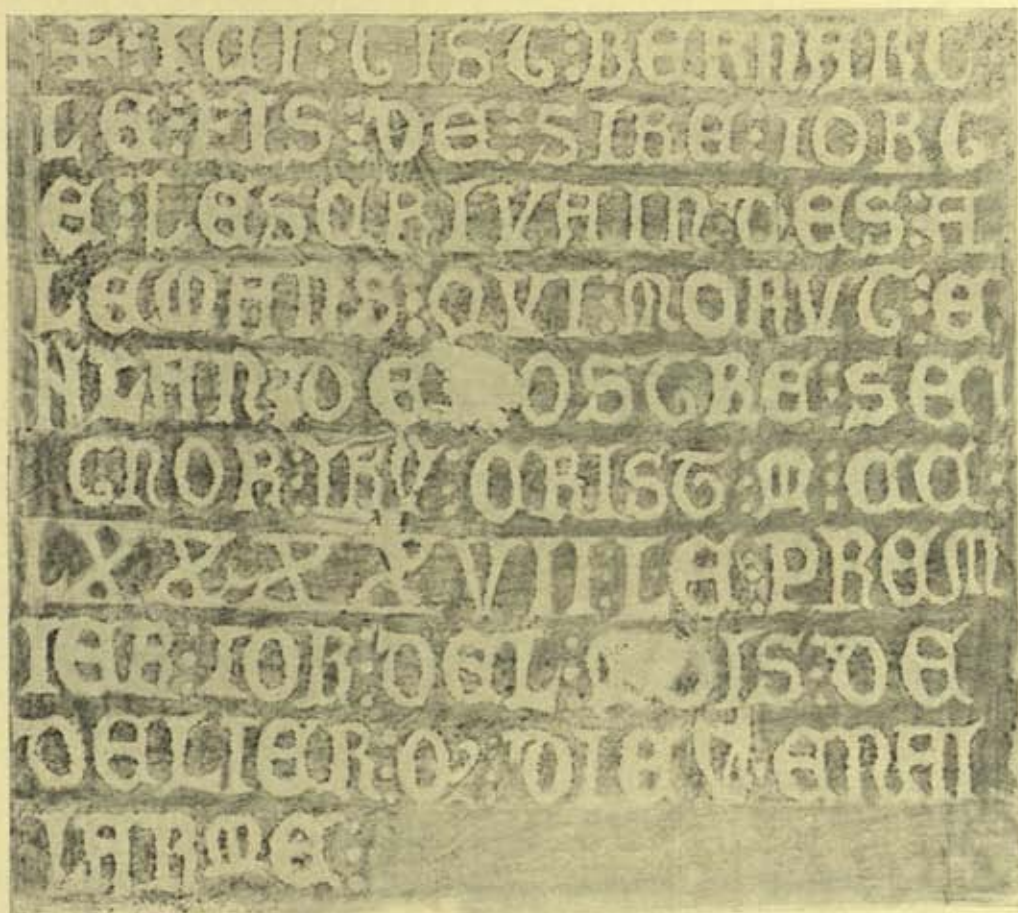 + : ICI : GIST : BERNART :
LE : FIS : DE : SIRE : IORG
E : LESCRIVAIN DES A
LEMANS : QVI : MORVT : E
N LAN : DE OSTRE : SEI
GNOR : IHV : CRIST : M : CC :
LXXXXVII : LE : PREM
IER : IOR : DEL : IS : DE
DELIER : Q2 : DIEV ENAI
LARME :